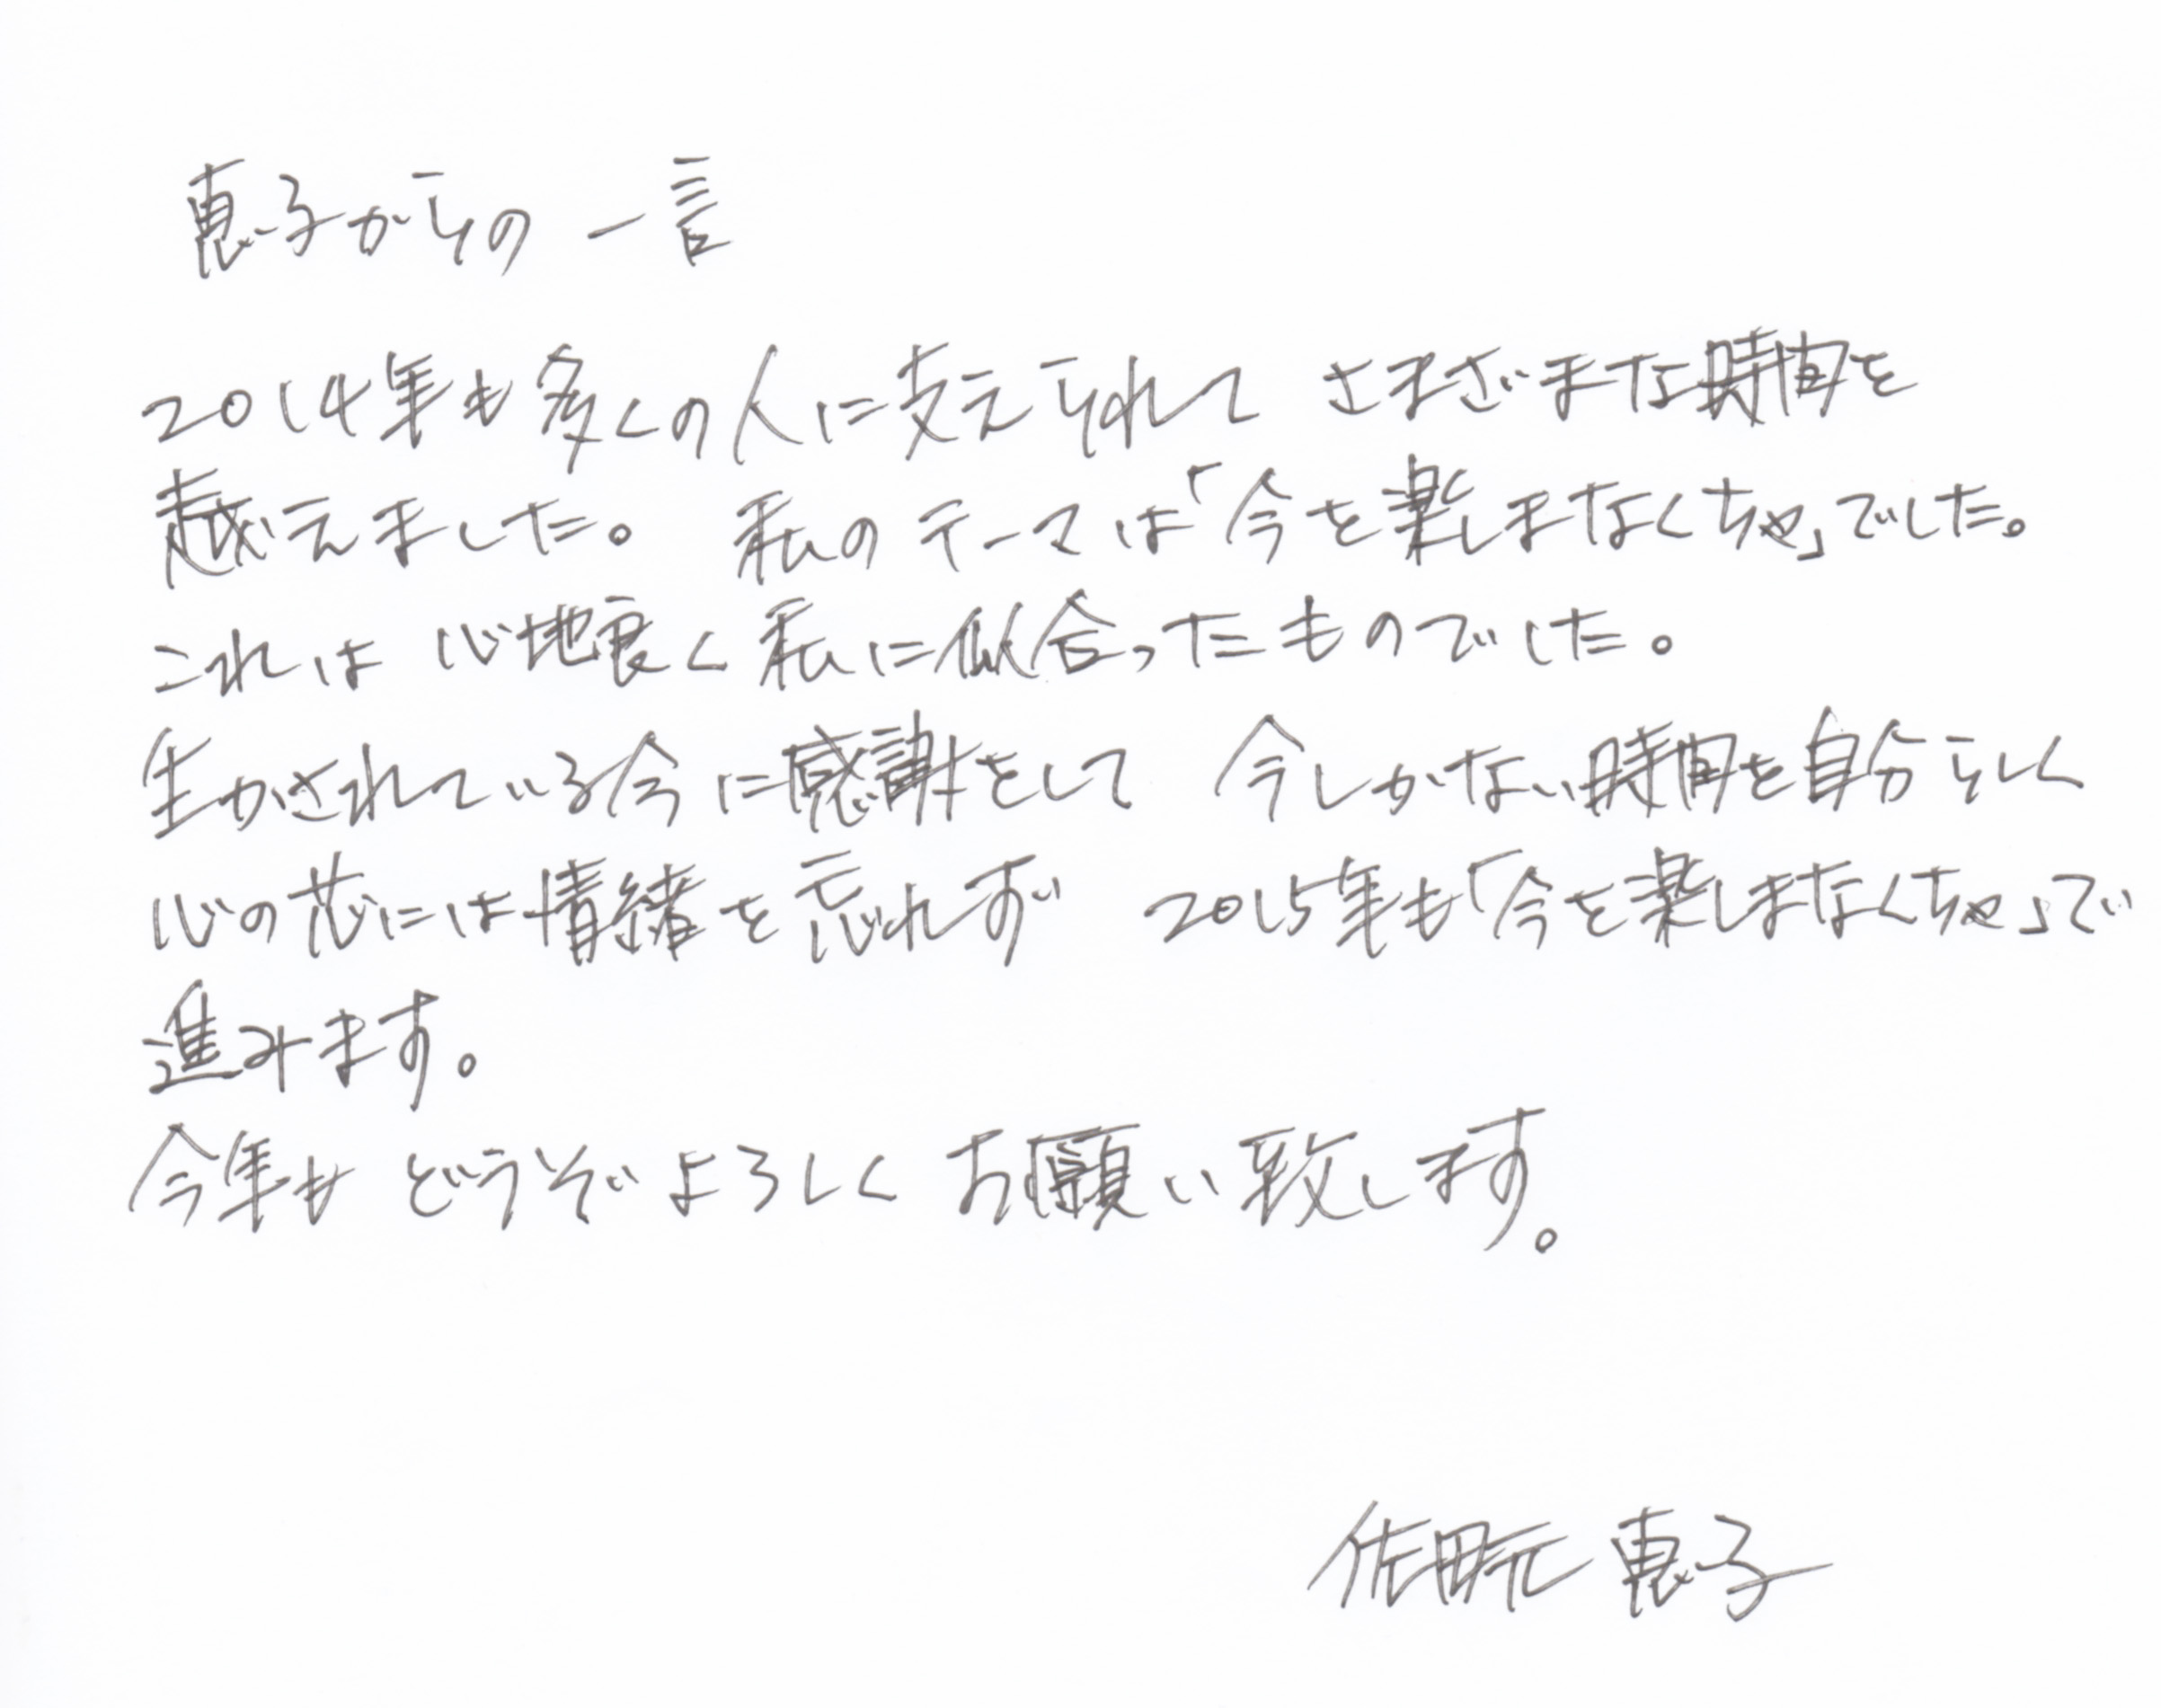 恵子からの一言
2014年も多くの人に支えられて さまざまな時間を
越えました。 私のテーマは「今を楽しまなくちゃ」でした。
これは 心地良く 私に似合ったものでした。
生かされている今に感謝をして 今しかない時間を自分らしく
心の芯には情緒を忘れず 2015年も「今を楽しまなくちゃ」で
進みます。
今年も どうぞよろしく お願い致します。
恵子